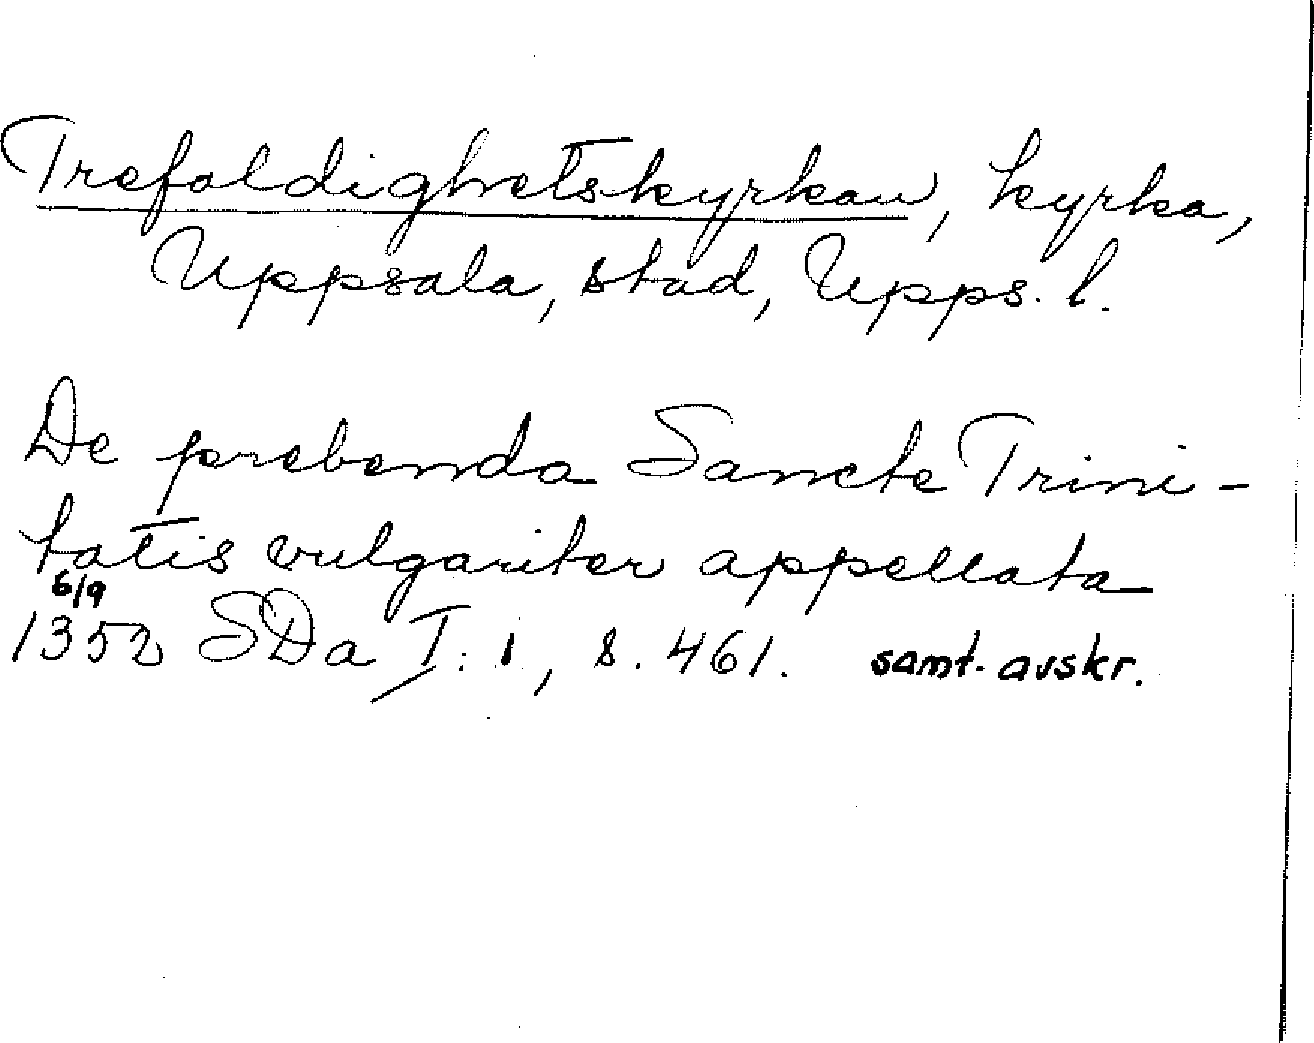 Trefaldighetskyrkan, kyrka,
Uppsala, stad, Upps. l.
De prebenda Sancte Trini-
tatis vulgariter appellata
6/9
1352 SDa I:1, s. 461. samt. avskr.